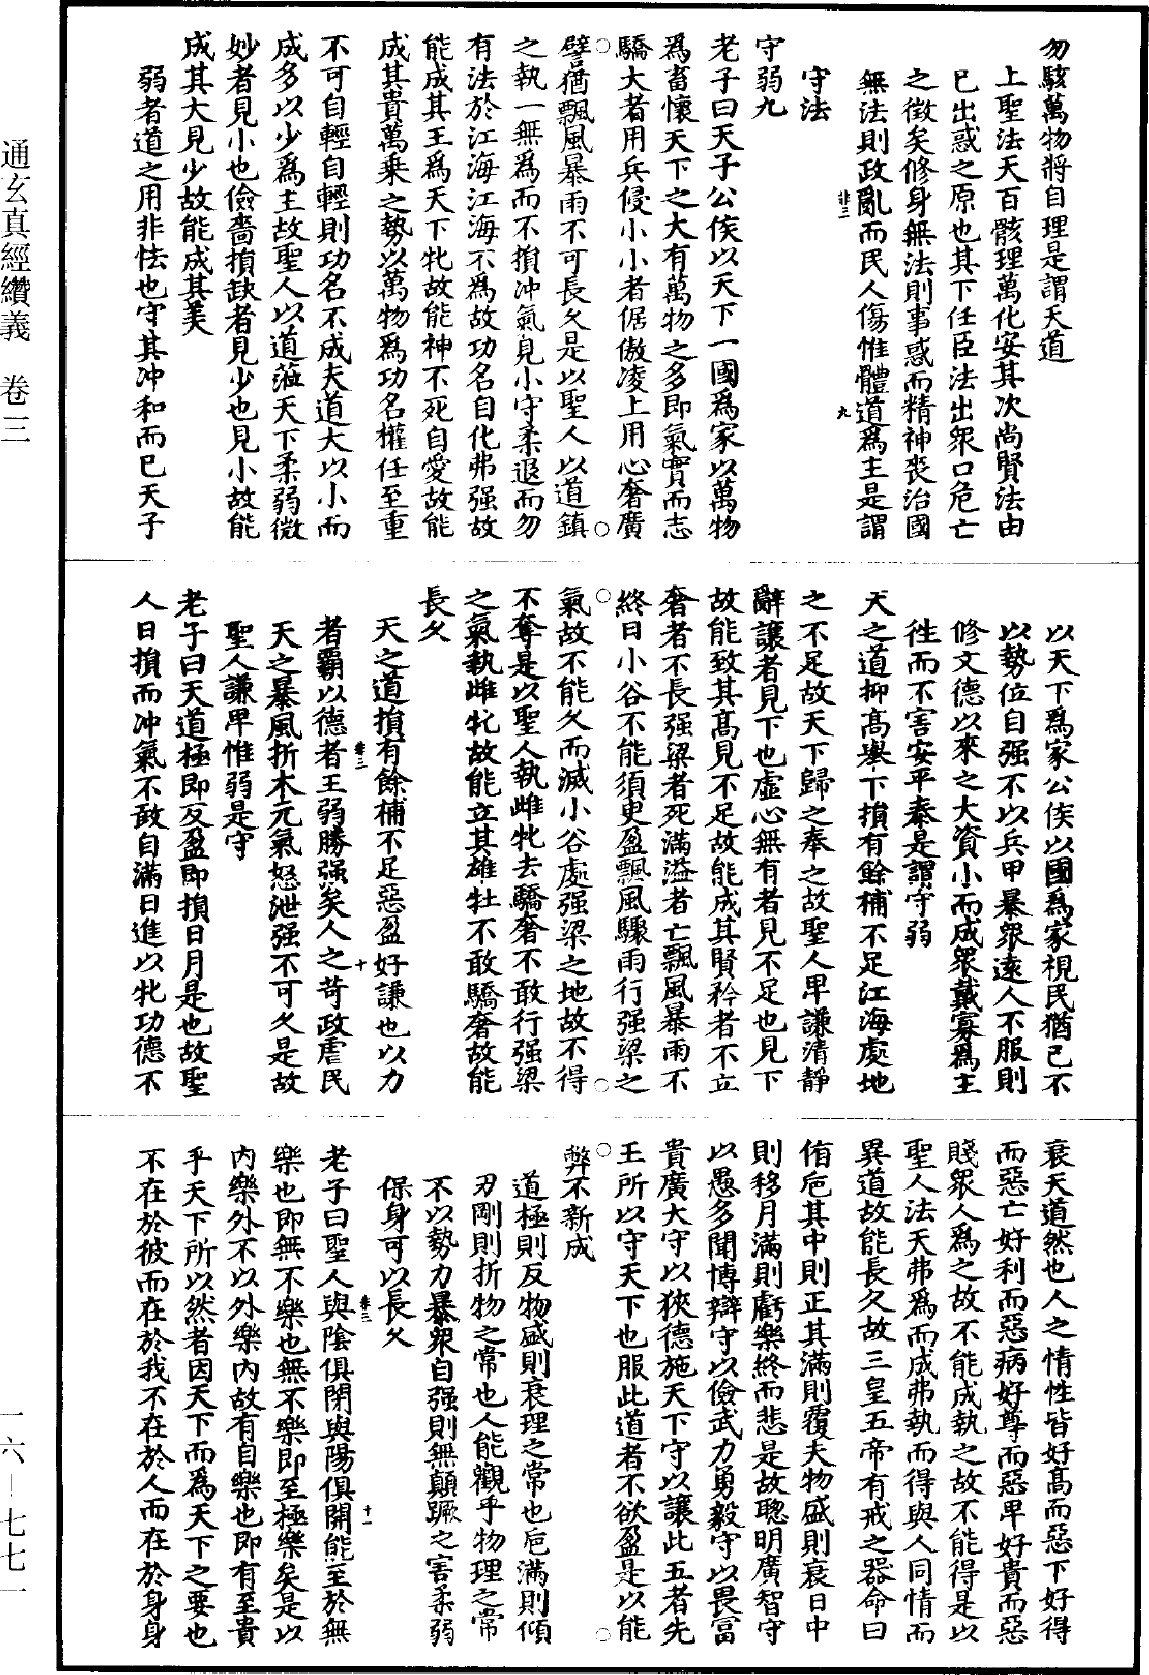 勿駭萬物將自理是謂天道
上聖法天百骸理萬化安其次尚賢法由
已出惑之原也其下任臣法出衆口危亡
之徵矣修身無法則事惑而精神喪治國
無法則政亂而民人傷惟體道爲主是謂
守法
守弱九
老子曰天子公侯以天下一國爲家以萬物
爲畜懷天下之大有萬物之多即氣實而志
驕大者用兵侵小小者倨傲凌上用心奢廣
譬猶飄風暴雨不可長久是以聖人以道鎮
之執一無爲而不損冲氣見小守柔退而勿
有法於江海江海不爲故功名自化弗强故
能成其王爲天下牝故能神不死自愛故能
成其貴萬乗之勢以萬物爲功名權任至重
不可自輕自輕則功名不成夫道大以小而
成多以少爲主故聖人以道莅天下柔弱微
妙者見小也儉嗇損缺者見少也見小故能
成其大見少故能成其美
弱者道之用非怯也守其冲和而已天子
以天下爲家公侯以國爲家視民猶己不
以勢位自强不以兵甲暴衆遠人不服則
修文德以來之大資小而成衆戴寡爲主
徃而不害安平泰是謂守弱
天之道抑高舉下損有餘補不足江海處地
之不足故天下歸之奉之故聖人卑謙清靜
辭讓者見下也虛心無有者見不足也見下
故能致其高見不足故能成其賢矜者不立
奢者不長强梁者死滿溢者亡飄風暴雨不
終日小谷不能須更盈飄風驟雨行强梁之
氣故不能久而滅小谷處强梁之地故不得
不奪是以聖人執雌牝去驕奢不敢行强梁
之氣執雌牝故能立其雄牡不敢驕奢故能
長久
天之道損有餘補不足惡盈好謙也以力
者霸以德者王弱勝强矣人之苛政虐民
天之暴風折木元氣怒泄强不可久是故
聖人謙卑惟弱是守
老子曰天道極即反盈即損日月是也故聖
人日損而冲氣不敢自滿日進以牝功德不
衰天道然也人之情性皆好高而惡下好得
而惡亡好利而惡病好尊而惡卑好貴而惡
賤衆人爲之故不能成執之故不能得是以
聖人法天弗爲而成弗執而得與人同情而
異道故能長久故三皇五帝有戒之器命曰
侑巵其中則正其滿則覆夫物盛則衰日中
則移月滿則虧樂終而悲是故聦明廣智守
以愚多聞博辯守以儉武力勇毅守以畏富
貴廣大守以狹德施天下守以讓此五者先
王所以守天下也服此道者不欲盈是以能
弊不新成
道極則反物盛則衰理之常也巵滿則傾
刃剛則折物之常也人能觀乎物理之常
不以勢力暴衆自强則無顛蹶之害柔弱
保身可以長久
老子曰聖人與陰俱閉與陽俱開能至於無
樂也即無不樂也無不樂即至極樂矣是以
内樂外不以外樂内故有自樂也即有至貴
乎天下所以然者因天下而爲天下之要也
不在於彼而在於我不在於人而在於身身
通玄真經纘義　卷三
一六—七七一